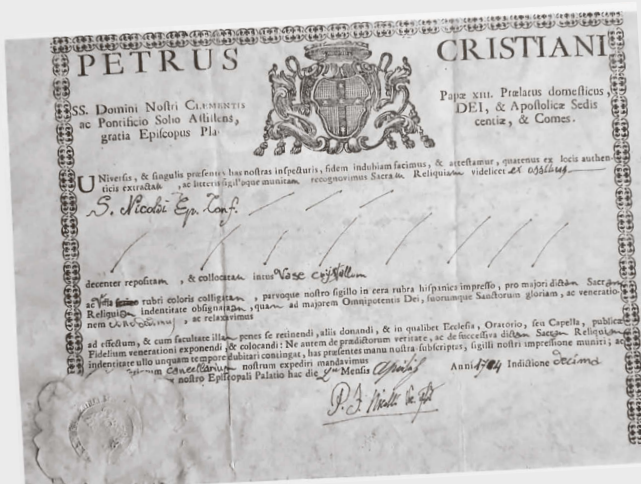 PETRUS CRISTIANI
SS. Domini Nostri CLEMENTIS Papæ XIII. Prælatus domesticus,
ac Pontificio Solio Assistens, DEI, & Apostolicæ Sedis
gratia Episcopus Pla- centiæ, & Comes.
UNiversis, & singulis præsentes has nostras inspecturis, fidem indubiam facimus, & attestamur, quatenus ex locis authen-
ticis extractam, ac litteris sigilloque munitam recognovimus Sacram Reliquiam videlicet ex ossibus
S. Nicolai Ep. Conf.
decenter repositam, & collocatam intus Vase crystallino
ac rubri coloris colligatam, parvoque nostro sigillo in cera rubra hispanica impresso, pro majori dictam Sacram
Reliquiam indentitate obsignatam, quam ad majorem Omnipotentis Dei, suorumque Sanctorum gloriam, ac veneratio-
nem ac relaxavimus
ad effectum, & cum facultate illam penes se retinendi, aliis donandi, & in qualibet Ecclesia, Oratorio, seu Capella, publicæ
Fidelium venerationi exponendi, & colocandi: Ne autem de prædictorum veritate, ac de successiva dictam Sacram Reliquiam
indentitate ullo unquam tempore dubitari contingat, has præsentes manu nostra subscriptas, sigilli nostri impressione muniri; ac
cancellarium nostrum expediri mandavimus
nostro Episcopali Palatio hac die Mensis Aprilis Anni Indictione decima